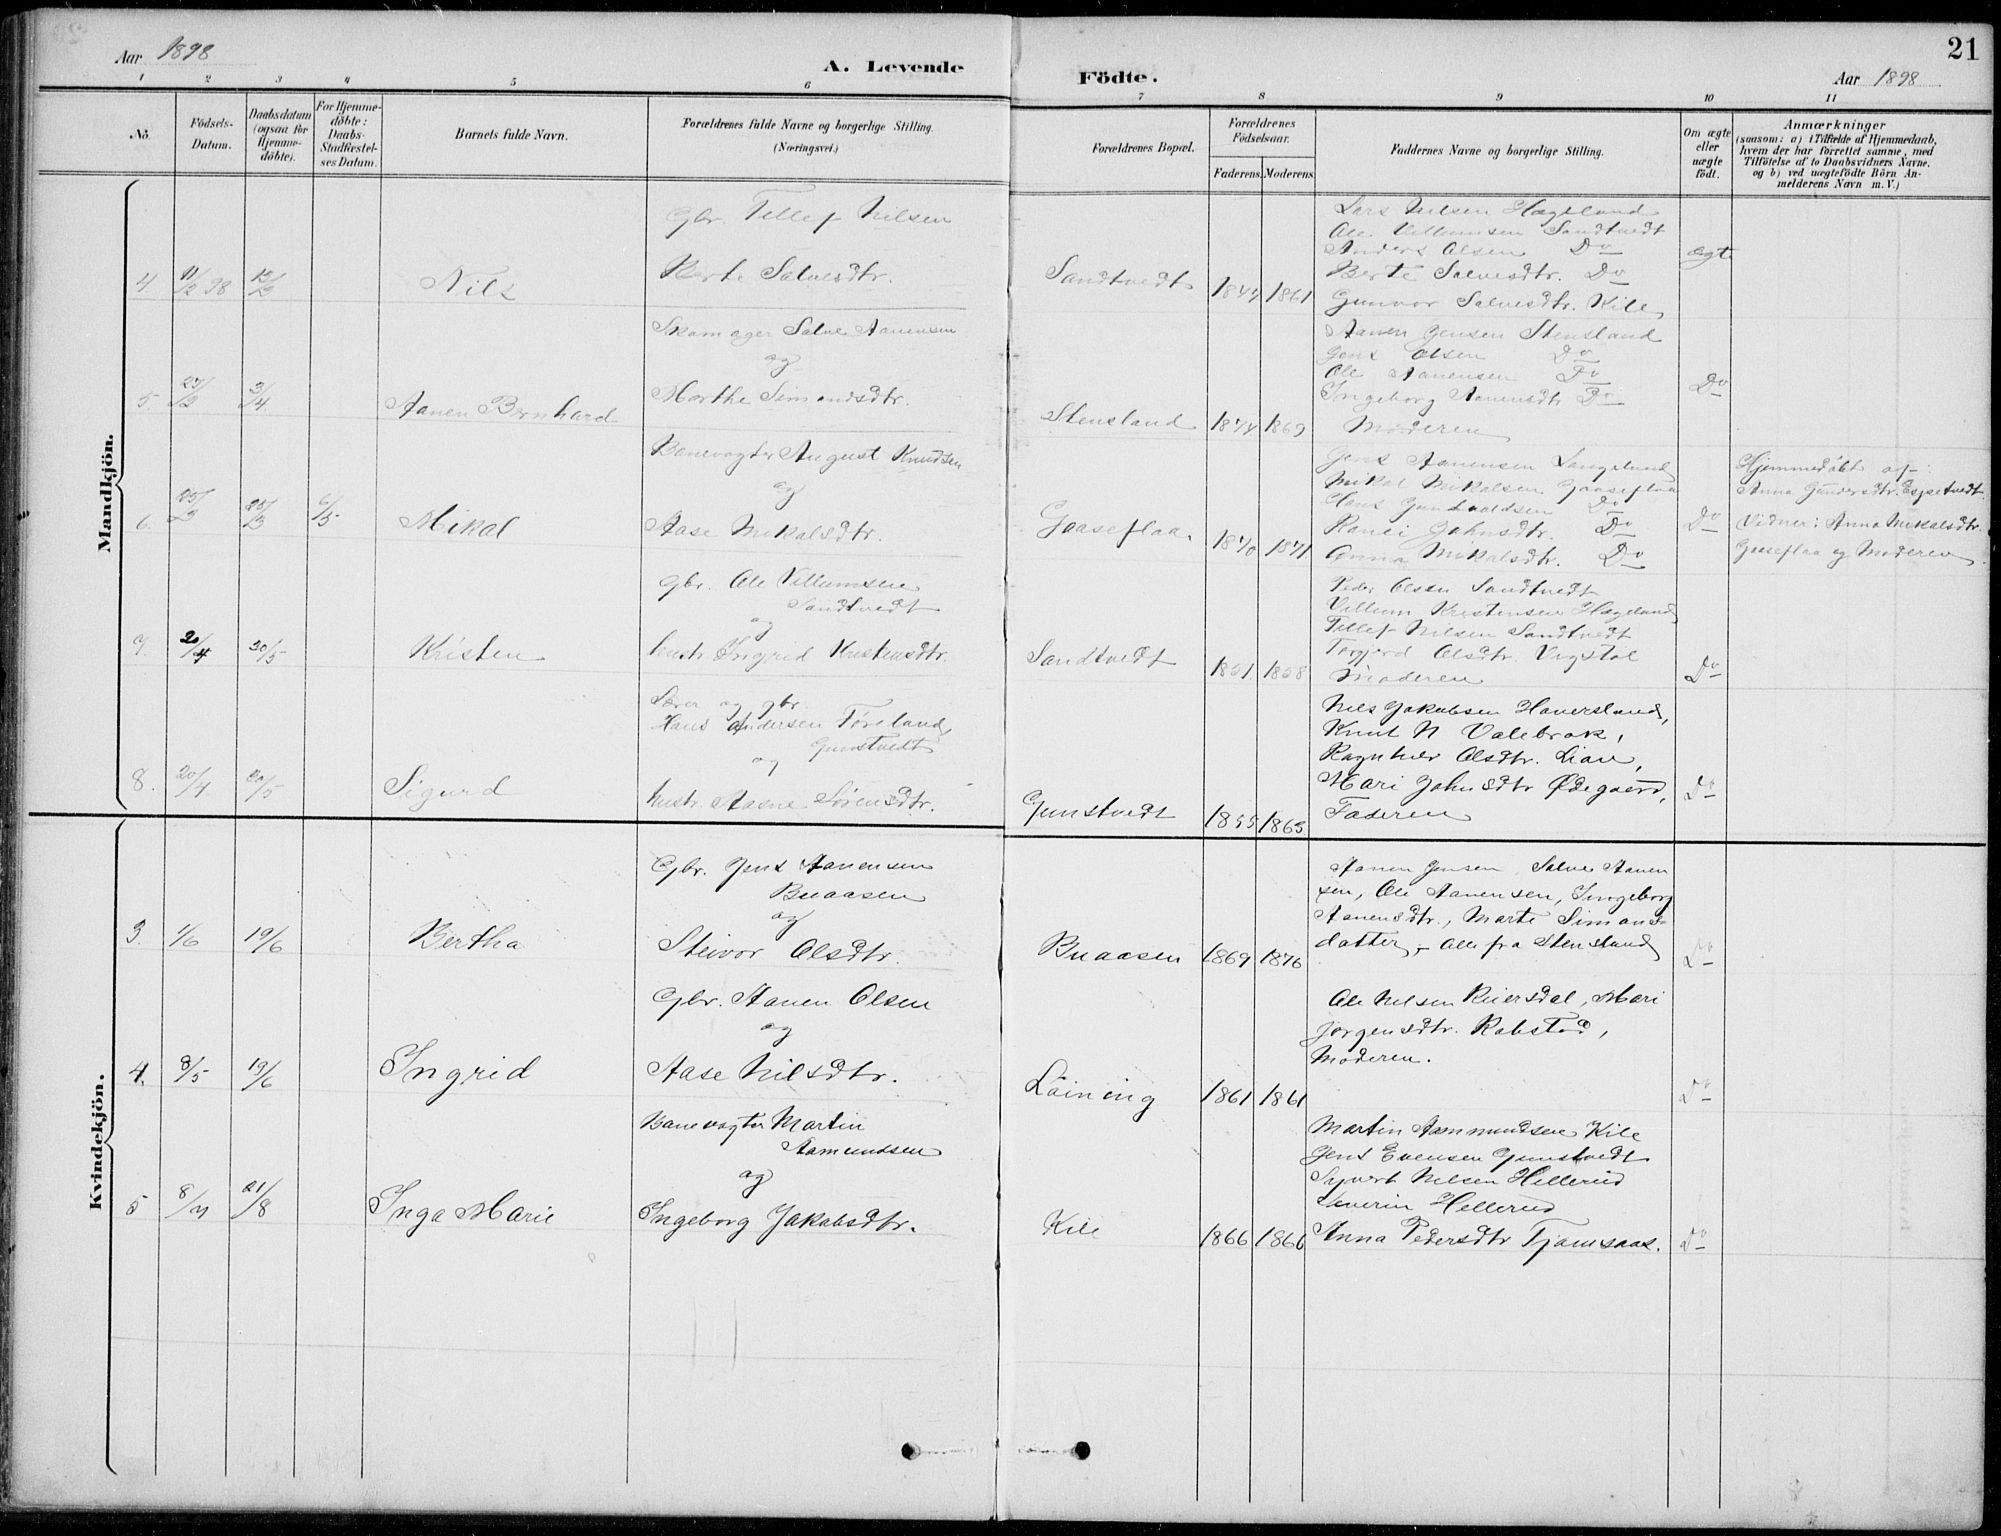 Aar 1898
A. Levende
Födte.
Aar 1898
21
1 2 3 4 5 6 7 8 9 10 11
No.
Födsels-Datum.
Daabsdatum (ogsaa for Hjemme-döbte).
For Hjemme-döbte: Daabs-Stadfæstel-ses Datum.
Barnets fulde Navn.
Forældrenes fulde Navne og borgerlige Stilling.
(Næringsvei.)
Forældrenes Bopæl.
Forældrenes Födselsaar.
Faderens. Moderens.
Faddernes Navne og borgerlige Stilling.
Om ægte eller uægte födt.
Anmærkninger
(saasom: a) i Tilfælde af Hjemmedaab,
hvem der har forrettet samme, med
Tilföielse af to Daabsvidners Navne,
og b) ved uægtefödte Börn An-
melderens Navn m. V.)
Mandkjön.
4 11/2 98 12/3 Nils
Gbr. Tellef Nilsen
Berte Salvesdtr.
Sandtvedt 1844 1861
Lars Nilsen Hægeland
Ole Villumsen Sandtvedt
Anders Olsen Do
Berte Salvesdtr. Do
Gunvor Salvesdtr. Kile
ægte
5 27/2 3/4 Aanen Bernhard
Skomager Salve Aanensen
og
Marthe Simonsdtr.
Stensland 1874 1869
Aanen Jensen Stensland
Jens Olsen Do
Ole Aanensen Do
Ingeborg Aanensdtr Do
Moderen
Do
6. 25/3 25/3 6/5 Mikal
Banevogter August Knudsen
og
Aase Mikalsdtr.
Gaaseflaa. 1870 1871
Jens Aanensen Langeland
Mikal Mikalsen Gaaseflaa
Hans Gundvaldsen Do
Ranei Jahnsdtr. Do
Anna Mikalsdtr. Do
Do
Hjemmedöbt af:
Anna Gundersdtr. Espetvedt
Vidner: Anna Mikalsdtr.
Gaaseflaa og Moderen
7. 20/4 30/5 Kristen
Gbr. Ole Villumsen
Sandtvedt
og
hustr. Ingrid Kristensdtr.
Sandtvedt 1851 1858
Peder Olsen Sandtvedt
Villum Kristensen Hægeland
Tellef Nilsen Sandtvedt
Torgjerd Olsdtr. Vigstöl
Moderen
Do
8. 20/4 30/5 Sigurd
Lærer og gbr
Hans Andersen Föreland,
Gunstvedt
og
hustr. Aasne Sörensdtr.
Gunstvedt 1855 1863
Nils Jakobsen Haversland,
Knut N Valebrok,
Ragnhild Olsdtr. Lian,
Mari Jahnsdtr Ødegaard,
Faderen
Do
Kvindekjön.
3. 1/6 19/6 Bertha
Gbr. Jens Aanensen
Buaasen
og
Steivor Olsdtr.
Buaasen 1869 1876
Aanen Jensen, Salve Aanen
sen, Ole Aanensen, Ingeborg
Aanensdtr., Marte Simons-
datter, - Alle fra Stensland
Do
4. 8/5 19/6 Ingrid
Gbr. Aanen Olsen
og
Aase Nilsdtr.
Löining 1861 1861
Ole Nilsen Reiersdal, Mari
Jörgensdtr. Robstad,
Moderen.
Do
5 8/7 21/8 Inga Marie
Banevogter Martin
Aamundsen
og
Ingeborg Jakobsdtr.
Kile 1866 1866
Martin Aammundsen Kile
Jens Evensen Gunstvedt
Syvert Nilsen Hellerud
Severin Hellerud
Anna Pedersdtr Tjomsaas.
Do